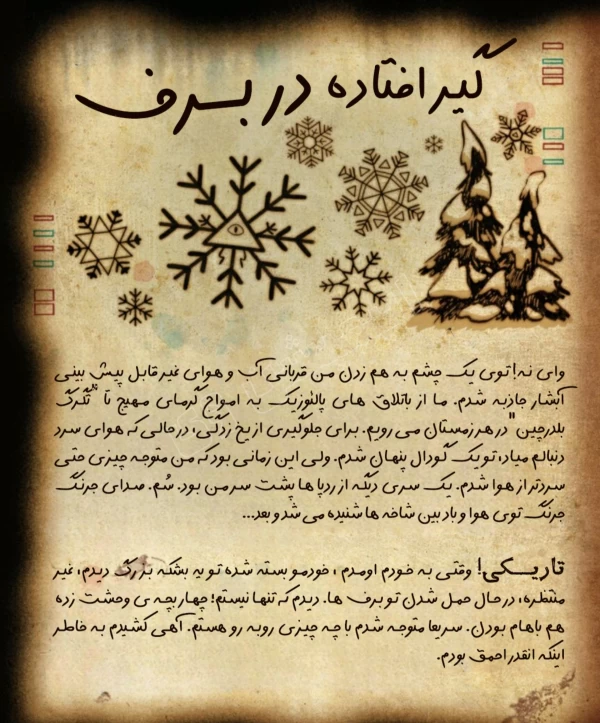 گیر افتاده در برف
وای نه! توی یک چشم به هم زدن من قربانی آب و هوای غیر قابل پیش بینی
آبشار جاذبه شدم. ما از باتلاق های پالئوزیک به امواج گرمای مهیج تا "تگرگ
بلدرچین" در هر زمستان می رویم. برای جلوگیری از یخ زدگی، در حالی که هوای سرد
دنبالم میاد، تو یک گودال پنهان شدم. ولی این زمانی بود که من متوجه چیزی حتی
سردتر از هوا شدم. یک سری دیگه از ردپا ها پشت سر من بود. سُم. صدای جرنگ
جرنگ توی هوا و باد بین شاخه ها شنیده می شد و بعد...
تاریکی! وقتی به خودم اومدم، خودمو بسته شده تو یه بشکه بزرگ دیدم، غیر
منتظره، در حال حمل شدن تو برف ها. دیدم که تنها نیستم؛ چهار بچه ی وحشت زده
هم باهام بودن. سریعا متوجه شدم با چه چیزی روبه رو هستم. آهی کشیدم به خاطر
اینکه انقدر احمق بودم.